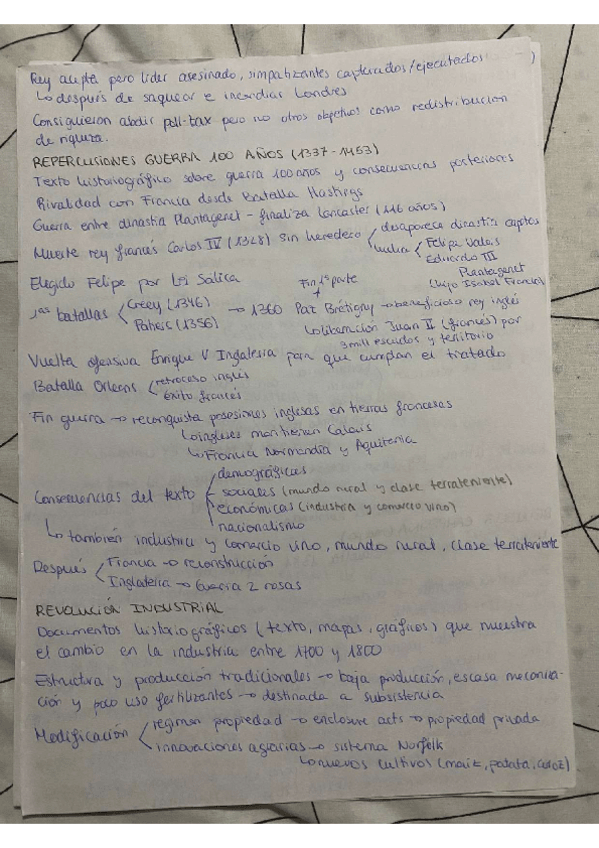 Rey acepta pero líder asesinado, simpatizantes capturados/ejecutados )
↳ después de saquear e incendiar Londres
Consiguieron abolir poll-tax pero no otros objetivos como redistribución
de riqueza.
REPERCUSIONES GUERRA 100 AÑOS (1337-1453)
Texto historiográfico sobre guerra 100 años y consecuencias posteriores
Rivalidad con Francia desde Batalla Hastings
Guerra entre dinastía Plantagenet - finaliza Lancaster (116 años)
Muerte rey francés Carlos IV (1328) sin heredero < desaparece dinastía capetos
lucha < Felipe Valois
Eduardo III
Plantagenet
(hijo Isabel Francia)
Elegido Felipe por Ley Sálica
Fin 1ª parte
1as batallas < Crecy (1346)
Poitiers (1356)
→ 1360 Paz Brétigny → beneficioso rey inglés
↳ liberación Juan II (francés) por
3 mill escudos y territorio
Vuelta ofensiva Enrique V Inglaterra para que cumplan el tratado
Batalla Orleans < retroceso inglés
éxito francés
Fin guerra → reconquista posesiones inglesas en tierras francesas
↳ ingleses mantienen Calais
↳ Francia Normandía y Aquitania
Consecuencias del texto < demográficas
sociales (mundo rural y clase terrateniente)
económicas (industria y comercio vino)
nacionalismo
↳ también industria y comercio vino, mundo rural, clase terrateniente
Después < Francia → reconstrucción
Inglaterra → Guerra 2 rosas
REVOLUCIÓN INDUSTRIAL
Documentos historiográficos (texto, mapas, gráficos) que muestra
el cambio en la industria entre 1700 y 1800
Estructura y producción tradicionales → baja producción, escasa mecaniza-
ción y poco uso fertilizantes → destinada a subsistencia
Modificación < régimen propiedad → enclosure acts → propiedad privada
innovaciones agrarias → sistema Norfolk
↳ nuevos cultivos (maíz, patata, arroz)